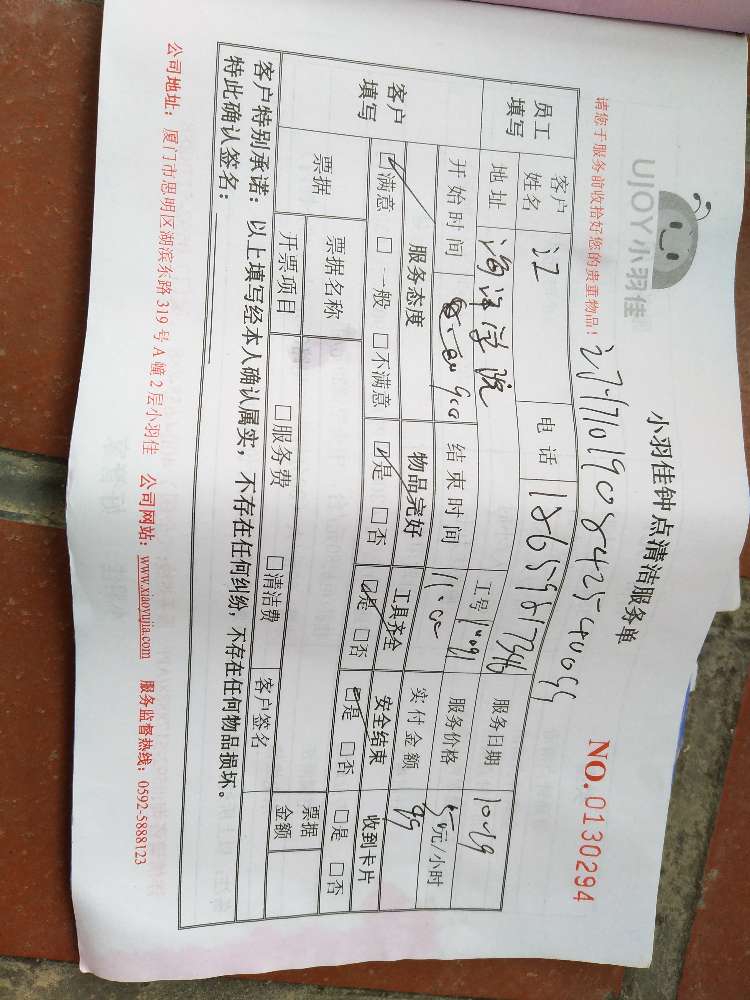 UJOY小羽佳
小羽佳钟点清洁服务单
NO.0130294
请您于服务前收拾好您的贵重物品!
员工填写
客户姓名 江 电话 服务日期 10-19
地址 海洋学院 工号 服务价格 元/小时
客户填写
开始时间 9:00 结束时间 11:00 实付金额 99
服务态度 物品完好 工具齐全 安全结束 收到卡片
☑满意 □一般 □不满意 ☑是 □否 ☑是 □否 ☑是 □否 □是 □否
票据 票据名称 票据金额
开票项目 □服务费 □清洁费 客户签名
客户特别承诺:以上填写经本人确认属实,不存在任何纠纷,不存在任何物品损坏。
特此确认签名:
公司地址:厦门市思明区湖滨东路319号A幢2层小羽佳 公司网站:www.xiaoyujia.com 服务监督热线:0592-5888123